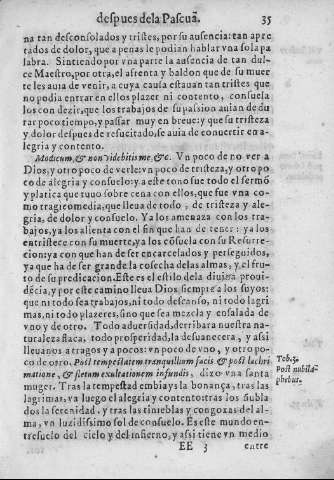 despues dela Pascuã. 35
na tan desconsolados y tristes, por su ausencia: tan apre
tados de dolor, que a penas le podian hablar vna sola pa
labra. Sintiendo por vna parte la ausencia de tan dul-
ce Maestro, por otra, el afrenta y baldon que de su muer
te les auia de venir, a cuya causa estauan tan tristes que
no podia entrar en ellos plazer ni contento, consuela
los con dezir, que los trabajos de su passiõ auian de du
rar poco tiempo, y passar muy en breue: y que su tristeza
y dolor despues de resucitado, se auia de conuertir en a-
legria y contento.
Modicum, & non videbitis me, &c. Vn poco de no ver a
Dios, y otro poco de verle: vn poco de tristeza, y otro po
co de alegria y consuelo: y a este tono fue todo el sermõ
y platica que tuuo sobre cena con ellos, que fue vna co-
mo tragicomedia, que lleua de todo, de tristeza y ale-
gria, de dolor y consuelo. Ya los amenaza con los tra-
bajos, ya los alienta con el fin que han de tener: ya los
entristece con su muerte, ya los cõsuela con su Resurre-
cion: ya con que han de ser encarcelados y perseguidos,
ya que ha de ser grande la cosecha de las almas, y el fru-
to de su predicacion. Este es el estilo de la diuina proui-
dẽcia, y por este camino lleua Dios siempre a los suyos:
que ni todo sea trabajos, ni todo descanso, ni todo lagri
mas, ni todo plazeres, sino que sea mezcla y ensalada de
vno y de otro. Todo aduersidad, derribara nuestra na-
turaleza flaca, todo prosperidad, la desuanecera, y assi
lleuanos a tragos y a poços: vn poco de vno, y otro po-
co de otro. Post tempestatem tranquillum facis & post lachri
mationem, & fletum exultationem infundis, dixo vna santa
muger. Tras la tempestad embia ys la bonança, tras las
lagrimas, va luego el alegria y contento: tras los ñubla
dos la serenidad, y tras las tinieblas y congoxas del al-
ma, vn luzidissimo sol de consuelo. Es este mundo en-
tresuelo del cielo y del infierno, y assi tiene vn medio
Tob. 3.
Post nubila
phœbus.
EE 3 entre